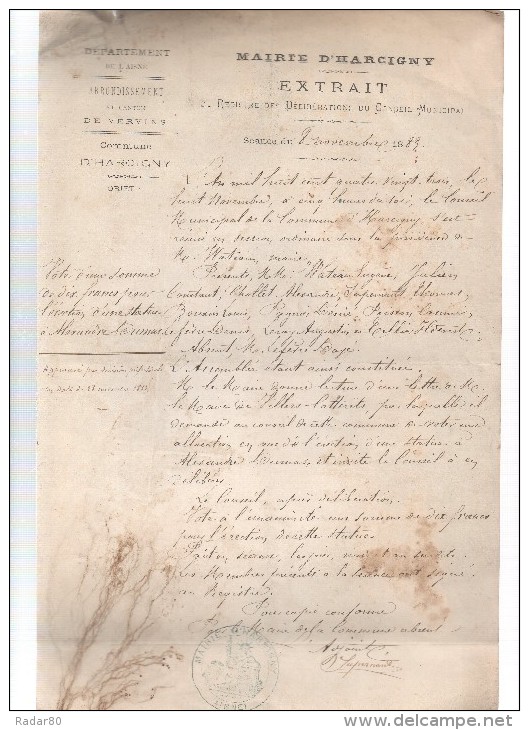 DÉPARTEMENT
DE L'AISNE
ARRONDISSEMENT
ET CANTON
DE VERVINS
Commune
D'HARCIGNY
OBJET :
Vote d'une somme
de dix francs pour
l'érection d'une statue
à Alexandre Dumas.
Approuvé par décision
MAIRIE D'HARCIGNY
EXTRAIT
REGISTRE DES DÉLIBÉRATIONS DU CONSEIL MUNICIPAL
Séance du 8 novembre 1883.
L'An mil huit cent quatre vingt trois, le
huit Novembre, à cinq heures du soir, le Conseil
Municipal de la Commune d'Harcigny, s'est
réuni en session ordinaire sous la présidence de
M. Wateau, maire.
Présents, M.M. Wateau, Julien
Constant, Chollet Alexandre, Thomas,
Louis, Denis,
Lefèvre Denis, Augustin, &
Absent, M. Lefèvre
L'Assemblée étant ainsi constituée,
M. le Maire donne lecture d'une lettre de M.
le Maire de Villers-Cotterêts, par laquelle il
demande au conseil de cette commune de voter une
allocation en vue de l'érection d'une statue à
Alexandre Dumas, et invite le Conseil à en
délibérer
Le Conseil, après délibération,
Vote à l'unanimité une somme de dix francs
pour l'érection de cette statue.
Fait en séance, les jour, mois et an susdits.
Les Membres présents à la séance ont signé
au Registre.
Pour copie conforme
Pour le Maire de la Commune absent
L'adjoint
Radar80
delcampe.net